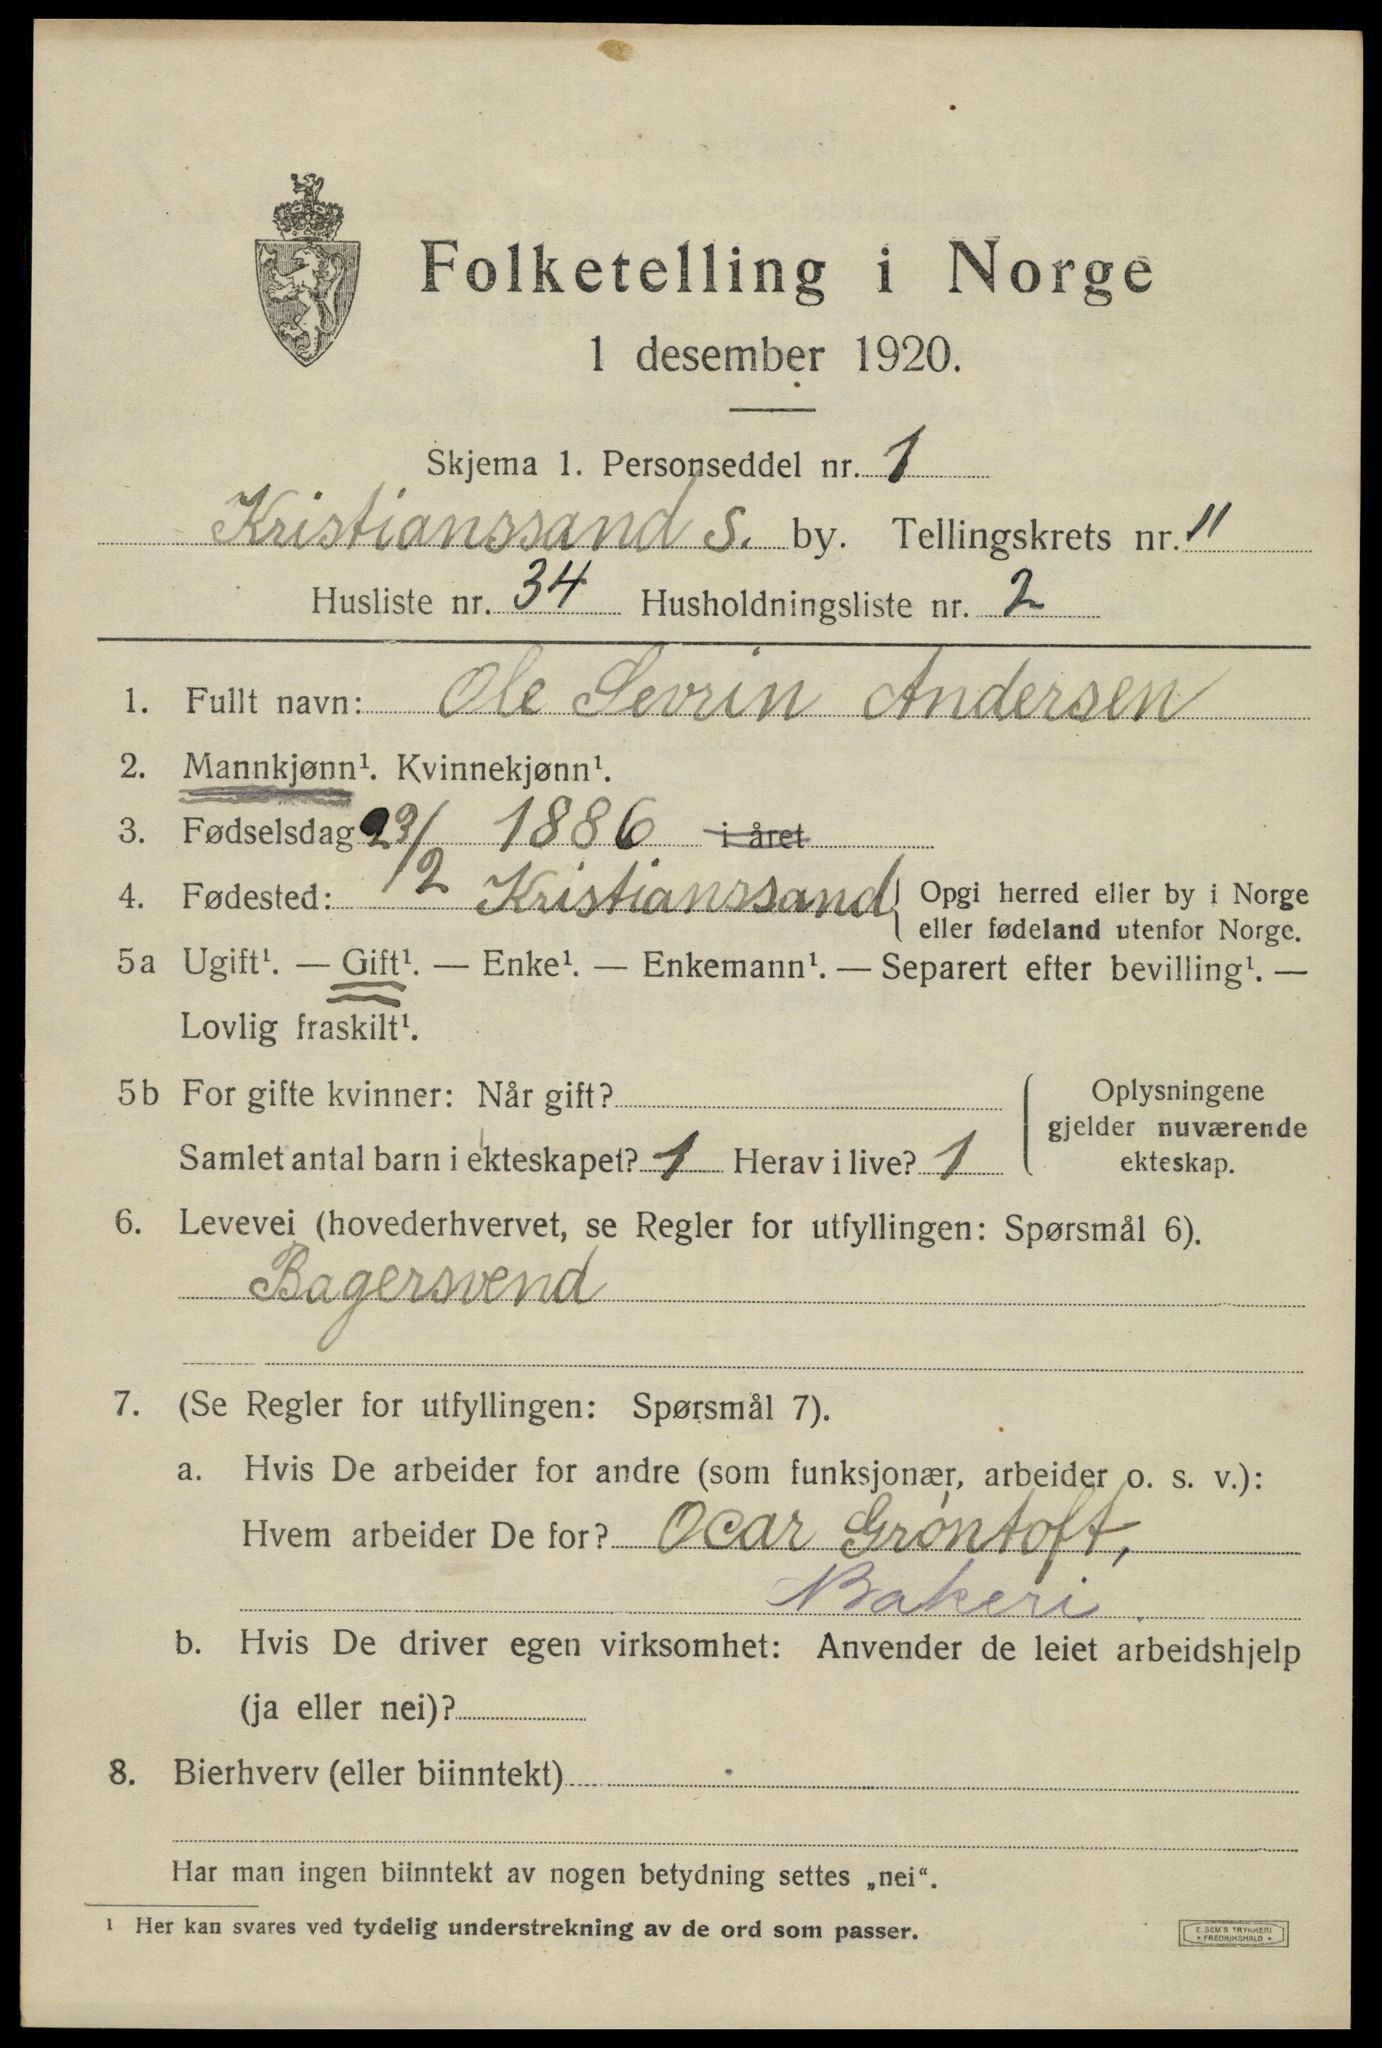 Folketelling i Norge
1 desember 1920.
Skjema 1. Personseddel nr. 1
Kristianssand S. by. Tellingskrets nr. 11
Husliste nr. 34 Husholdningsliste nr. 2
1. Fullt navn: Ole Sevrin Andersen
2. Mannkjønn¹. Kvinnekjønn¹.
3. Fødselsdag 23/2 1886 i året
4. Fødested: Kristianssand { Opgi herred eller by i Norge
eller fødeland utenfor Norge.
5a Ugift¹. — Gift¹. — Enke¹. — Enkemann¹. — Separert efter bevilling¹. —
Lovlig fraskilt¹.
5b For gifte kvinner: Når gift?
Samlet antal barn i ekteskapet? 1 Herav i live? 1
Oplysningene
gjelder nuværende
ekteskap.
6. Levevei (hovederhvervet, se Regler for utfyllingen: Spørsmål 6).
Bagersvend
7. (Se Regler for utfyllingen: Spørsmål 7).
a. Hvis De arbeider for andre (som funksjonær, arbeider o. s. v.):
Hvem arbeider De for? Ocar Grøntoft,
Bakeri.
b. Hvis De driver egen virksomhet: Anvender de leiet arbeidshjelp
(ja eller nei)?
8. Bierhverv (eller biinntekt)
Har man ingen biinntekt av nogen betydning settes „nei“.
¹ Her kan svares ved tydelig understrekning av de ord som passer.
E. SEM'S TRYKKERI
• FREDRIKSHALD •